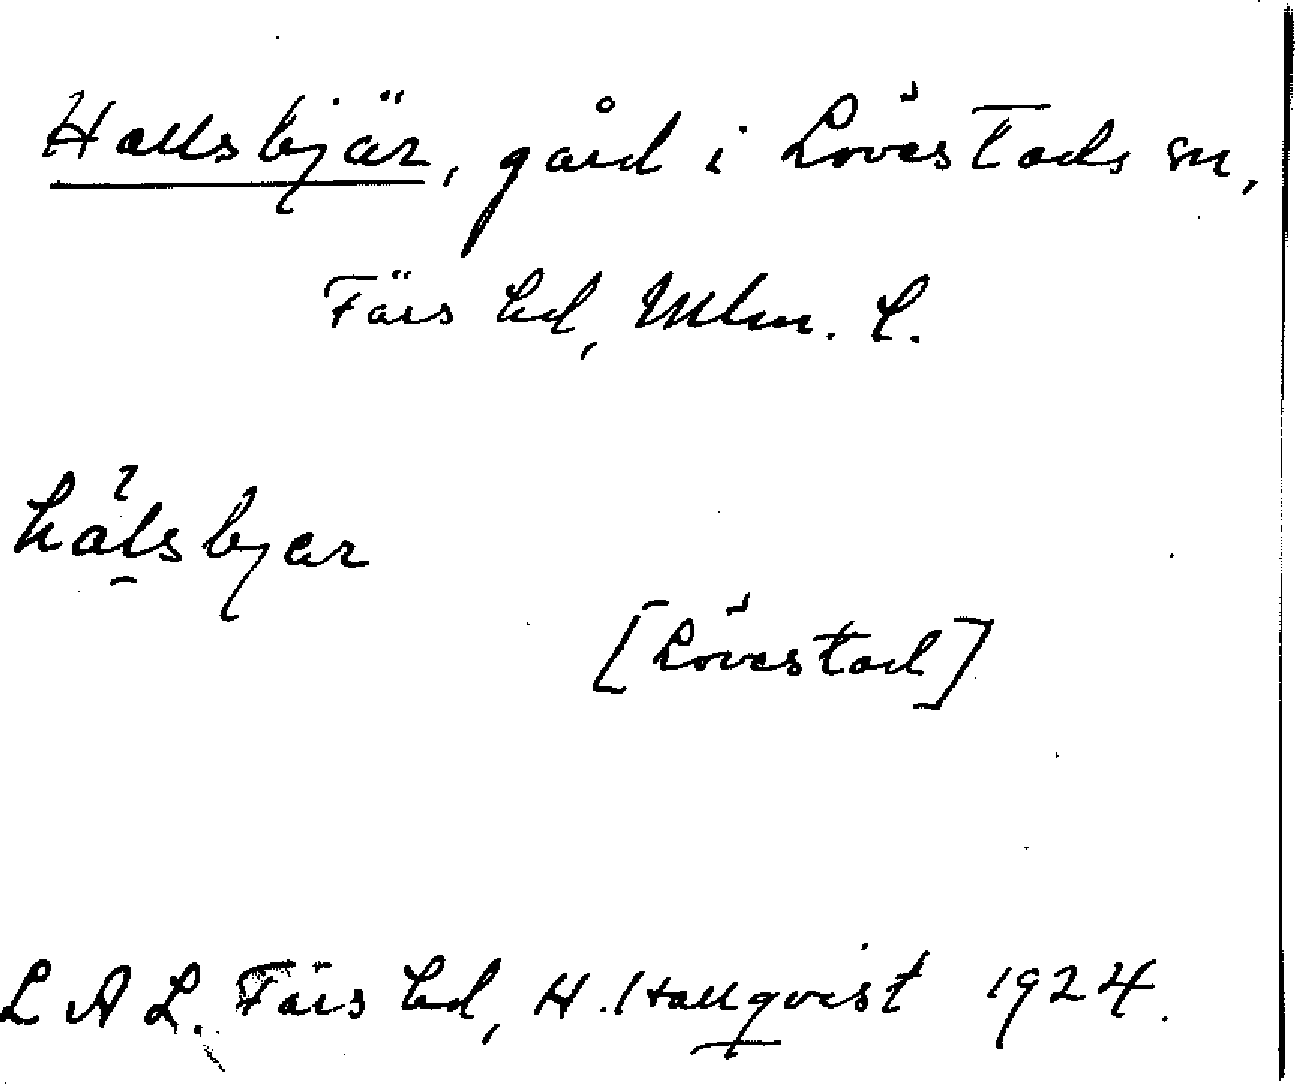 Hallsbjär, gård i Lövestads sn,
Färs hd, Mlm. L.
halsbjar
[Lövestad]
L A L. Färs hd, H. Hallqvist 1924.